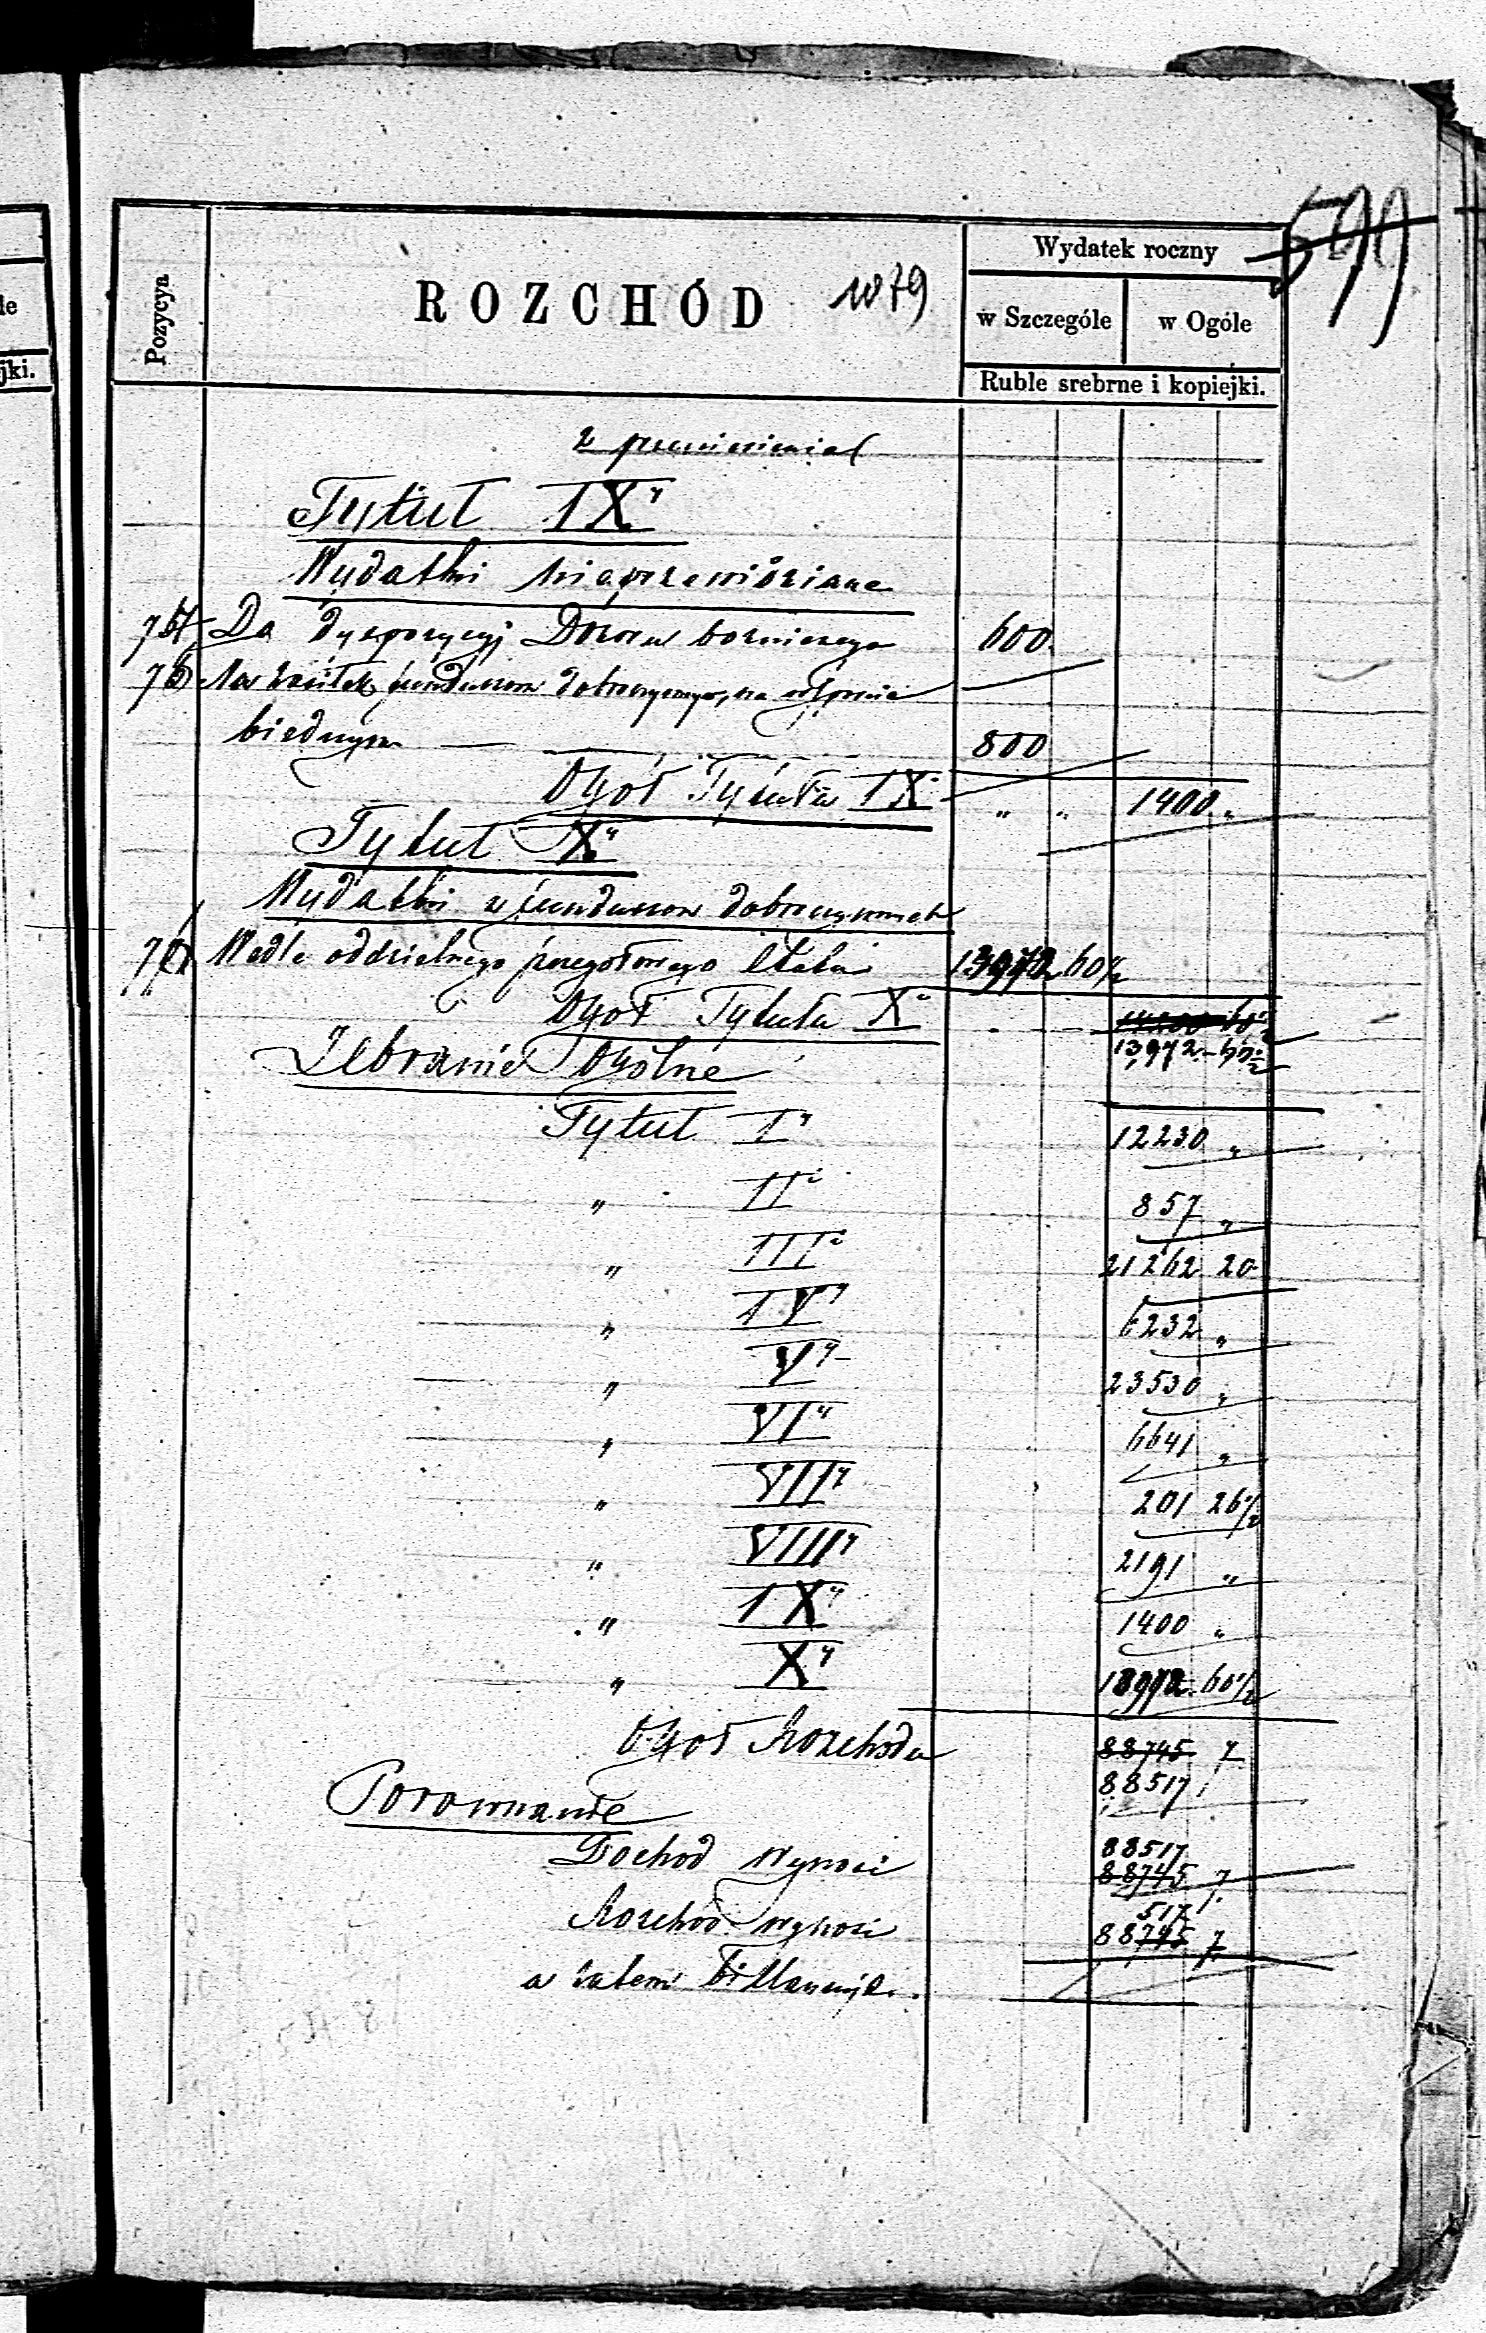 599
Pozycya
ROZCHÓD 1879
Wydatek roczny
w Szczególe w Ogóle
Ruble srebrne i kopiejki.
z przeniesienia
Tytuł IXy
Wydatki nieprzewidziane
Do dyspozycyi Dozoru bożniczego 600
Na zasiłek funduszów dobroczynnych, na
biednym — 800
Ogół Tytułu IX " " 1400 "
Tytuł Xy
Wydatki z funduszów dobroczynnych
Wedle oddzielnego szczegółowego etatu 13972 60½
Ogół Tytułu X
13972-60½
Zebranie Ogólne
Tytuł Iy 12230 "
" II 857 "
" III 21262 20
" IVy 6232 "
" Vy 23530 "
" VIy 6641 "
" VIIy 201 26½
" VIIIy 2191 "
" IXy 1400 "
" Xy 13972 60½
Ogół Rozchodu 88745 7
88517
Porównanie
88517
Dochód wynosi 88745 7
517
Rozchód wynosi 88745 7
a zatem
le
jki.